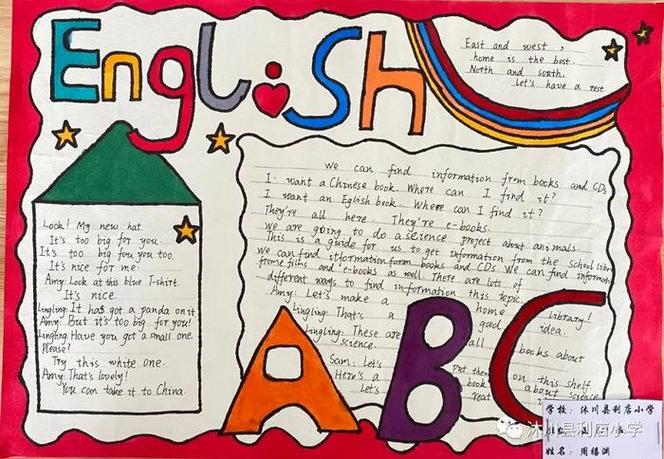 English
East and west,
home is the best.
North and south.
Let's have a rest
Look! My new hat.
It's too big for you
It's too big fou you too.
It's nice for me.
Amy: Look at this blue T-shirt.
It's nice.
Lingling: It has got a panda on it
Amy: But it's too big for you!
Lingling: Have you got a small one
Please!
Try this white one.
Amy: That's lovely!
You can take it to China.
We can find information from books and CDs
I want a Chinese book. Where can I find it?
I want an Eglish book. Where can I find it?
They're all here They're e-books.
We are going to do a science project about animals.
This is a guide for us to get information from the School
We can find itformation form books and CDs We can find information
frome films and e-books as well There are lots of
different ways to find information this topic.
Amy: Let's make a home library!
Lingling: That's a good idea.
Lingling: These are all books about
science.
Sam: Let's put them on this shelf
Here's a book about science
Let's
ABC
学校：沐川县利店小学
姓名：周禧渊
沐川县利店小学